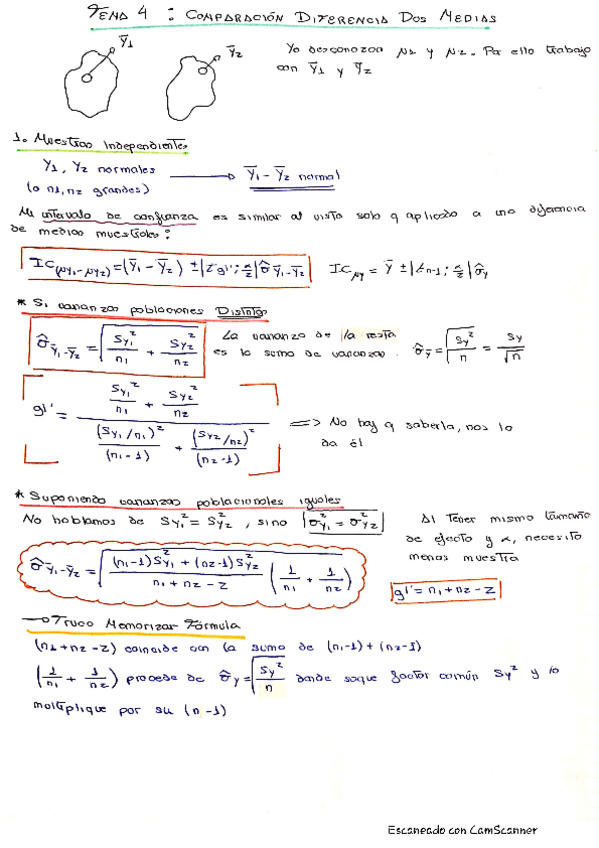 TEMA 4 : COMPARACIÓN DIFERENCIA DOS MEDIAS
Ȳ1
Ȳ2
Yo desconozco μ1 y μ2. Por ello trabajo
con Ȳ1 y Ȳ2
1. Muestras Independientes
Y1, Y2 normales ⟶ Ȳ1 - Ȳ2 normal
(o n1, n2 grandes)
Mi intervalo de confianza es similar al visto solo q aplicado a una diferencia
de medias muestrales:
IC(μY1-μY2) = (Ȳ1 - Ȳ2) ± |t gl'; α/2| σ̂Ȳ1-Ȳ2
ICμY = Ȳ ± |t n-1; α/2| σ̂Ȳ
* Si varianzas poblaciones Distintas
σ̂Ȳ1-Ȳ2 = √(Sy1²/n1 + Sy2²/n2)
La varianza de la resta
es la suma de varianzas.
σ̂Ȳ = √(Sy²/n) = Sy/√n
gl' = (Sy1²/n1 + Sy2²/n2) / ((Sy1/n1)²/(n1-1) + (Sy2/n2)²/(n2-1))
=> No hay q saberla, nos la
da él
* Suponiendo varianzas poblacionales iguales
No hablamos de Sy1² = Sy2², sino σy1² = σy2²
Al tener mismo tamaño
de efecto y α, necesito
menos muestra
σ̂Ȳ1-Ȳ2 = √((n1-1)Sy1² + (n2-1)Sy2² / n1 + n2 - 2 (1/n1 + 1/n2))
gl' = n1 + n2 - 2
⟶ Truco Memorizar Fórmula
(n1 + n2 - 2) coincide con la suma de (n1-1) + (n2-1)
(1/n1 + 1/n2) procede de σ̂y = √(Sy²/n) donde saque factor común Sy² y lo
multiplique por su (n-1)
Escaneado con CamScanner